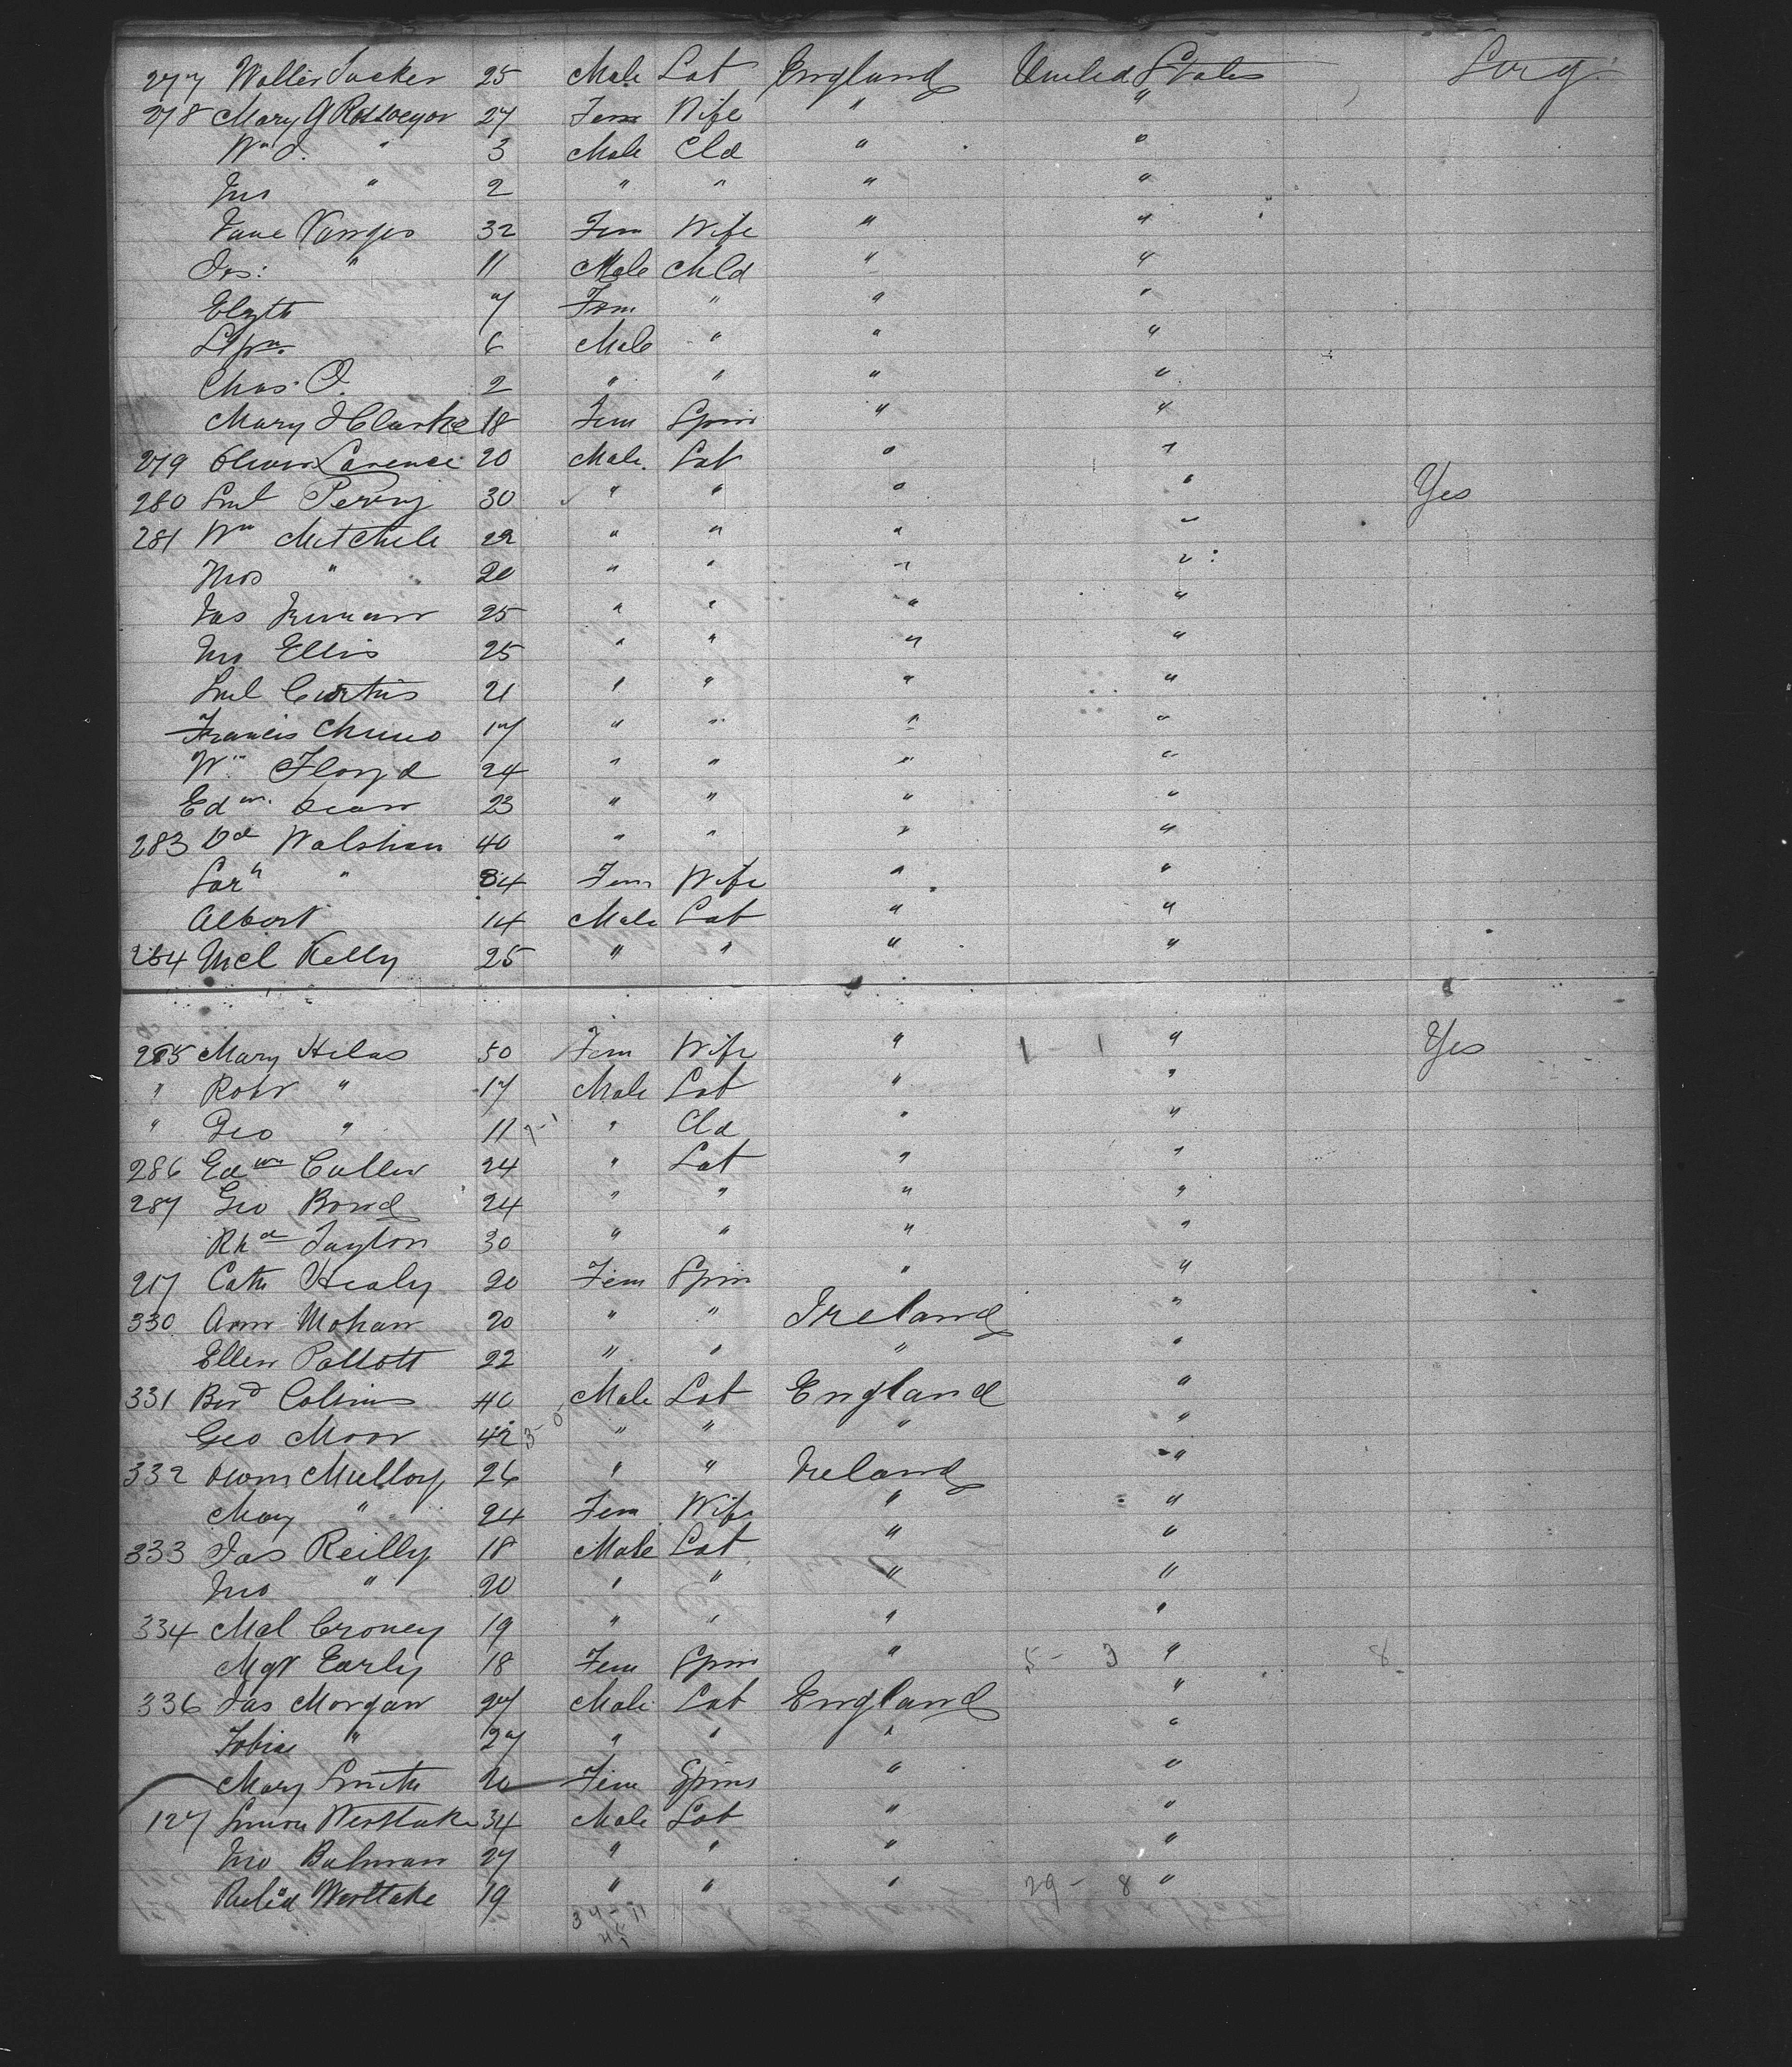 277 Walter Tucker 25 Male Lab England United States
278 Mary G Rosweyor 27 Fem Wife " "
Wm J. " 3 Male Cld " "
Jno " 2 " " " "
Jane 32 Fem Wife " "
Jos: " 11 Male Chld " "
Elizth 7 Fem " " "
6 Male " " "
Chas. O. 2 " " " "
Mary J Clarke 18 Fem Spin " "
279 Oliver Larence 20 Male Lab " "
280 Saml Perry 30 " " " " Yes
281 Wm Mitchell 22 " " " "
Thos " 20 " " " "
Jas 25 " " " "
Jno Ellis 25 " " " "
Saml Curtis 21 " " " "
Francis 17 " " " "
Wm Floyd 24 " " " "
Edwn. 23 " " " "
283 Walshaw 40 " " " "
Sarh " 34 Fem Wife " "
Albert 14 Male Lab " "
284 Micl Kelly 25 " " " "
285 Mary Hilas 50 Fem Wife " 1 - 1 " Yes
" Robt " 17 Male Lab " "
" Geo " 11 " Cld " "
286 Edwn Cullen 24 " Lab " "
287 Geo Bond 24 " " " "
Rhd Taylor 30 " " " "
217 Cath Healy 20 Fem Spin " "
330 Ann Mohan 20 " " Ireland "
Ellen Pallott 22 " " " "
331 Bird Collins 40 Male Lab England "
Geo Moor 42 " " " "
332 Owen Mulloy 26 " " Ireland "
Mary " 24 Fem Wife " "
333 Jas Reilly 18 Male Lab " "
Jno " 20 " " " "
334 Mal Croney 19 " " " "
Mgt Early 18 Fem Spin " 5 - 3 " 8
336 Jas Morgan 27 Male Lab England "
Tobias " 27 " " " "
Mary Smith 20 Fem Spins " "
127 Simon Westlake 34 Male Lab " "
Jno Balman 27 " " " "
Westlake 19 " " " 29 - 8 "
34 - 11
45